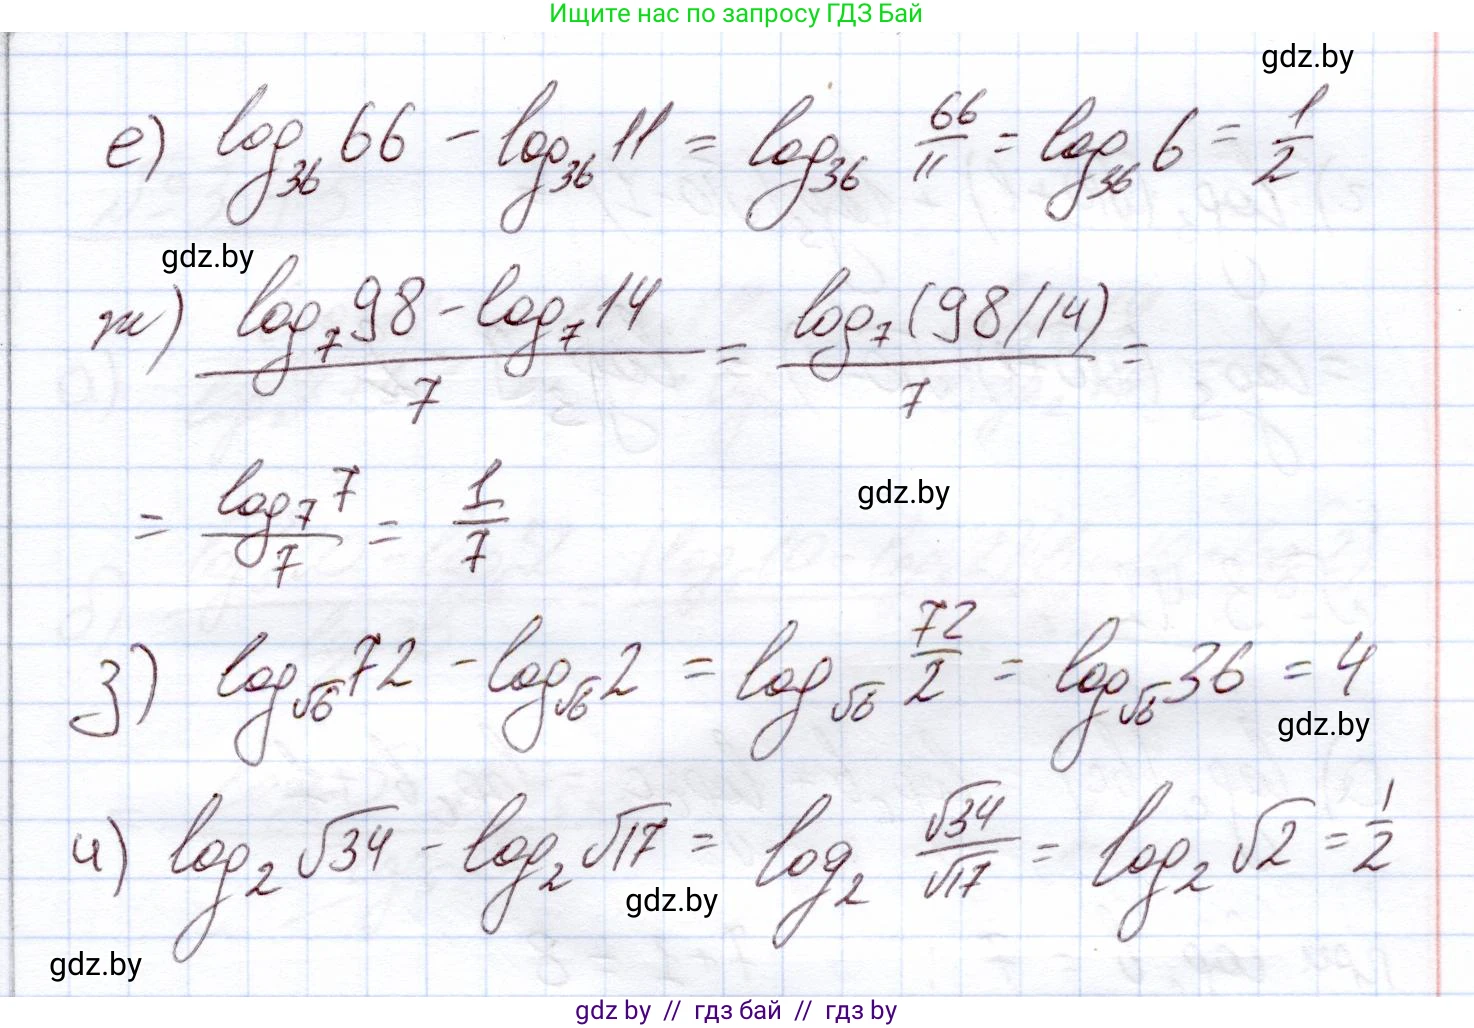 Ищите нас по запросу ГДЗ Бай
gdz.by
е) log₃₆ 66 − log₃₆ 11 = log₃₆ 66/11 = log₃₆ 6 = 1/2
gdz.by
ж) (log₇ 98 − log₇ 14)/7 = (log₇ (98/14))/7 =
= (log₇ 7)/7 = 1/7
gdz.by
з) log_√6 72 − log_√6 2 = log_√6 72/2 = log_√6 36 = 4
gdz.by
и) log₂ √34 − log₂ √17 = log₂ √34/√17 = log₂ √2 = 1/2
gdz.by
gdz.by
gdz by // гдз бай // гдз by